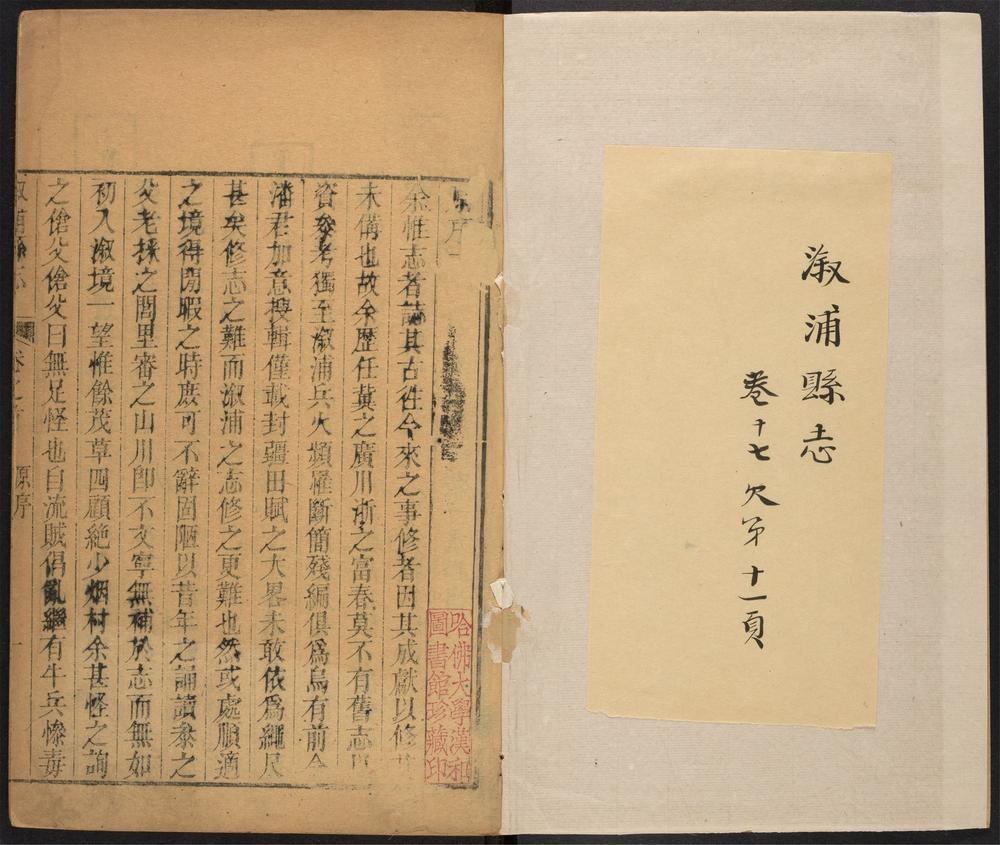 溆浦縣志
卷十七欠第十一頁
原序
余惟志者誌其古往今來之事修者因其成獻以修
未備也故余歷任冀之廣川浙之富春莫不有舊志
資參考獨至溆浦兵火頻罹斷簡殘編俱爲烏有前令
潘君加意搜輯僅載封疆田賦之大畧未敢依爲繩尺
甚矣修志之難而溆浦之志修之更難也然或處順適
之境得閒暇之時庶可不辭固陋以昔年之誦讀叅之
父老採之閭里審之山川卽不文寧無補於志而無如
初入溆境一望惟餘茂草四顧絶少烟村余甚怪之詢
之傖父傖父曰無足怪也自流賊倡亂繼有牛兵慘毒
溆浦縣志
卷之首
原序
一
哈佛大學漢和
圖書館珍藏印